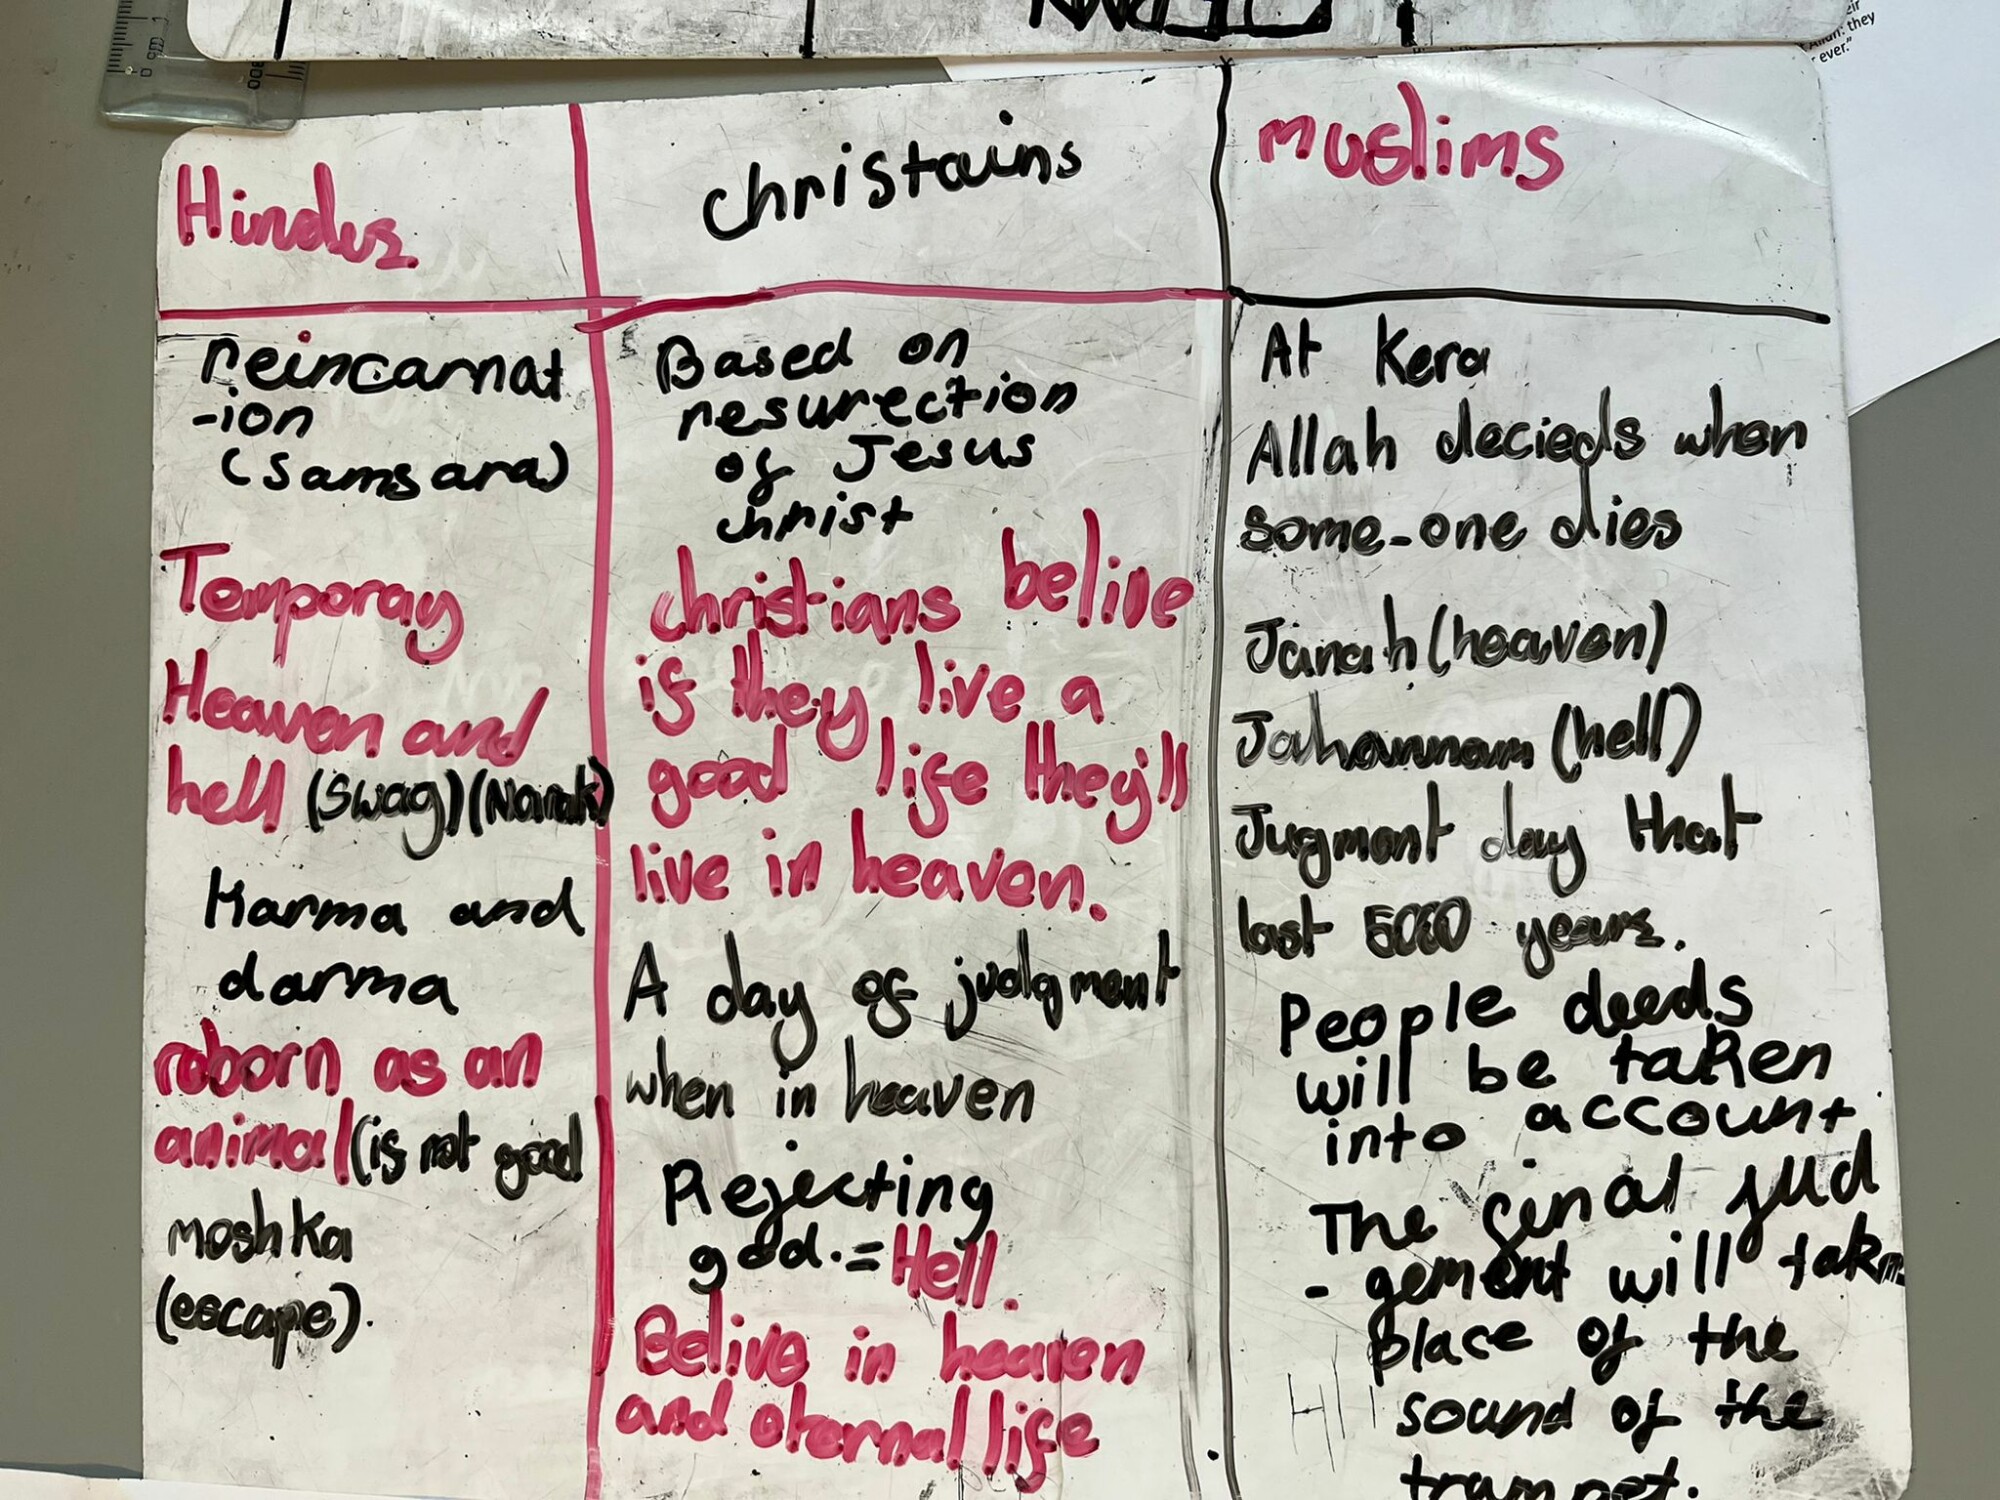 Hindus
reincarnat
-ion
(samsara)
Temporay
Heaven and
hell (swag) (Narak)
Karma and
darma
reborn as an
animal (is not good
moshka
(escape).
christains
Based on
resurection
of Jesus
christ
christians belive
if they live a
good life they'll
live in heaven.
A day of judgment
when in heaven
Rejecting
god. = Hell.
Belive in heaven
and eternal life
muslims
At Kera
Allah decieds when
some-one dies
Janah (heaven)
Jahannam (hell)
Jugment day that
last 5000 years.
People deeds
will be taken
into account.
The final jud
- gement will take
place of the
sound of the
trumpet.
HI
they
ever."